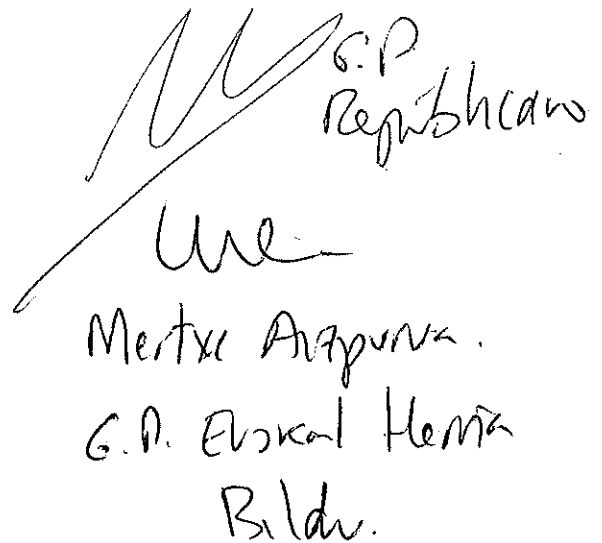 G.P
Republicano
Mertxe Aizpurua.
G.P. Euskal Herria
Bildu.